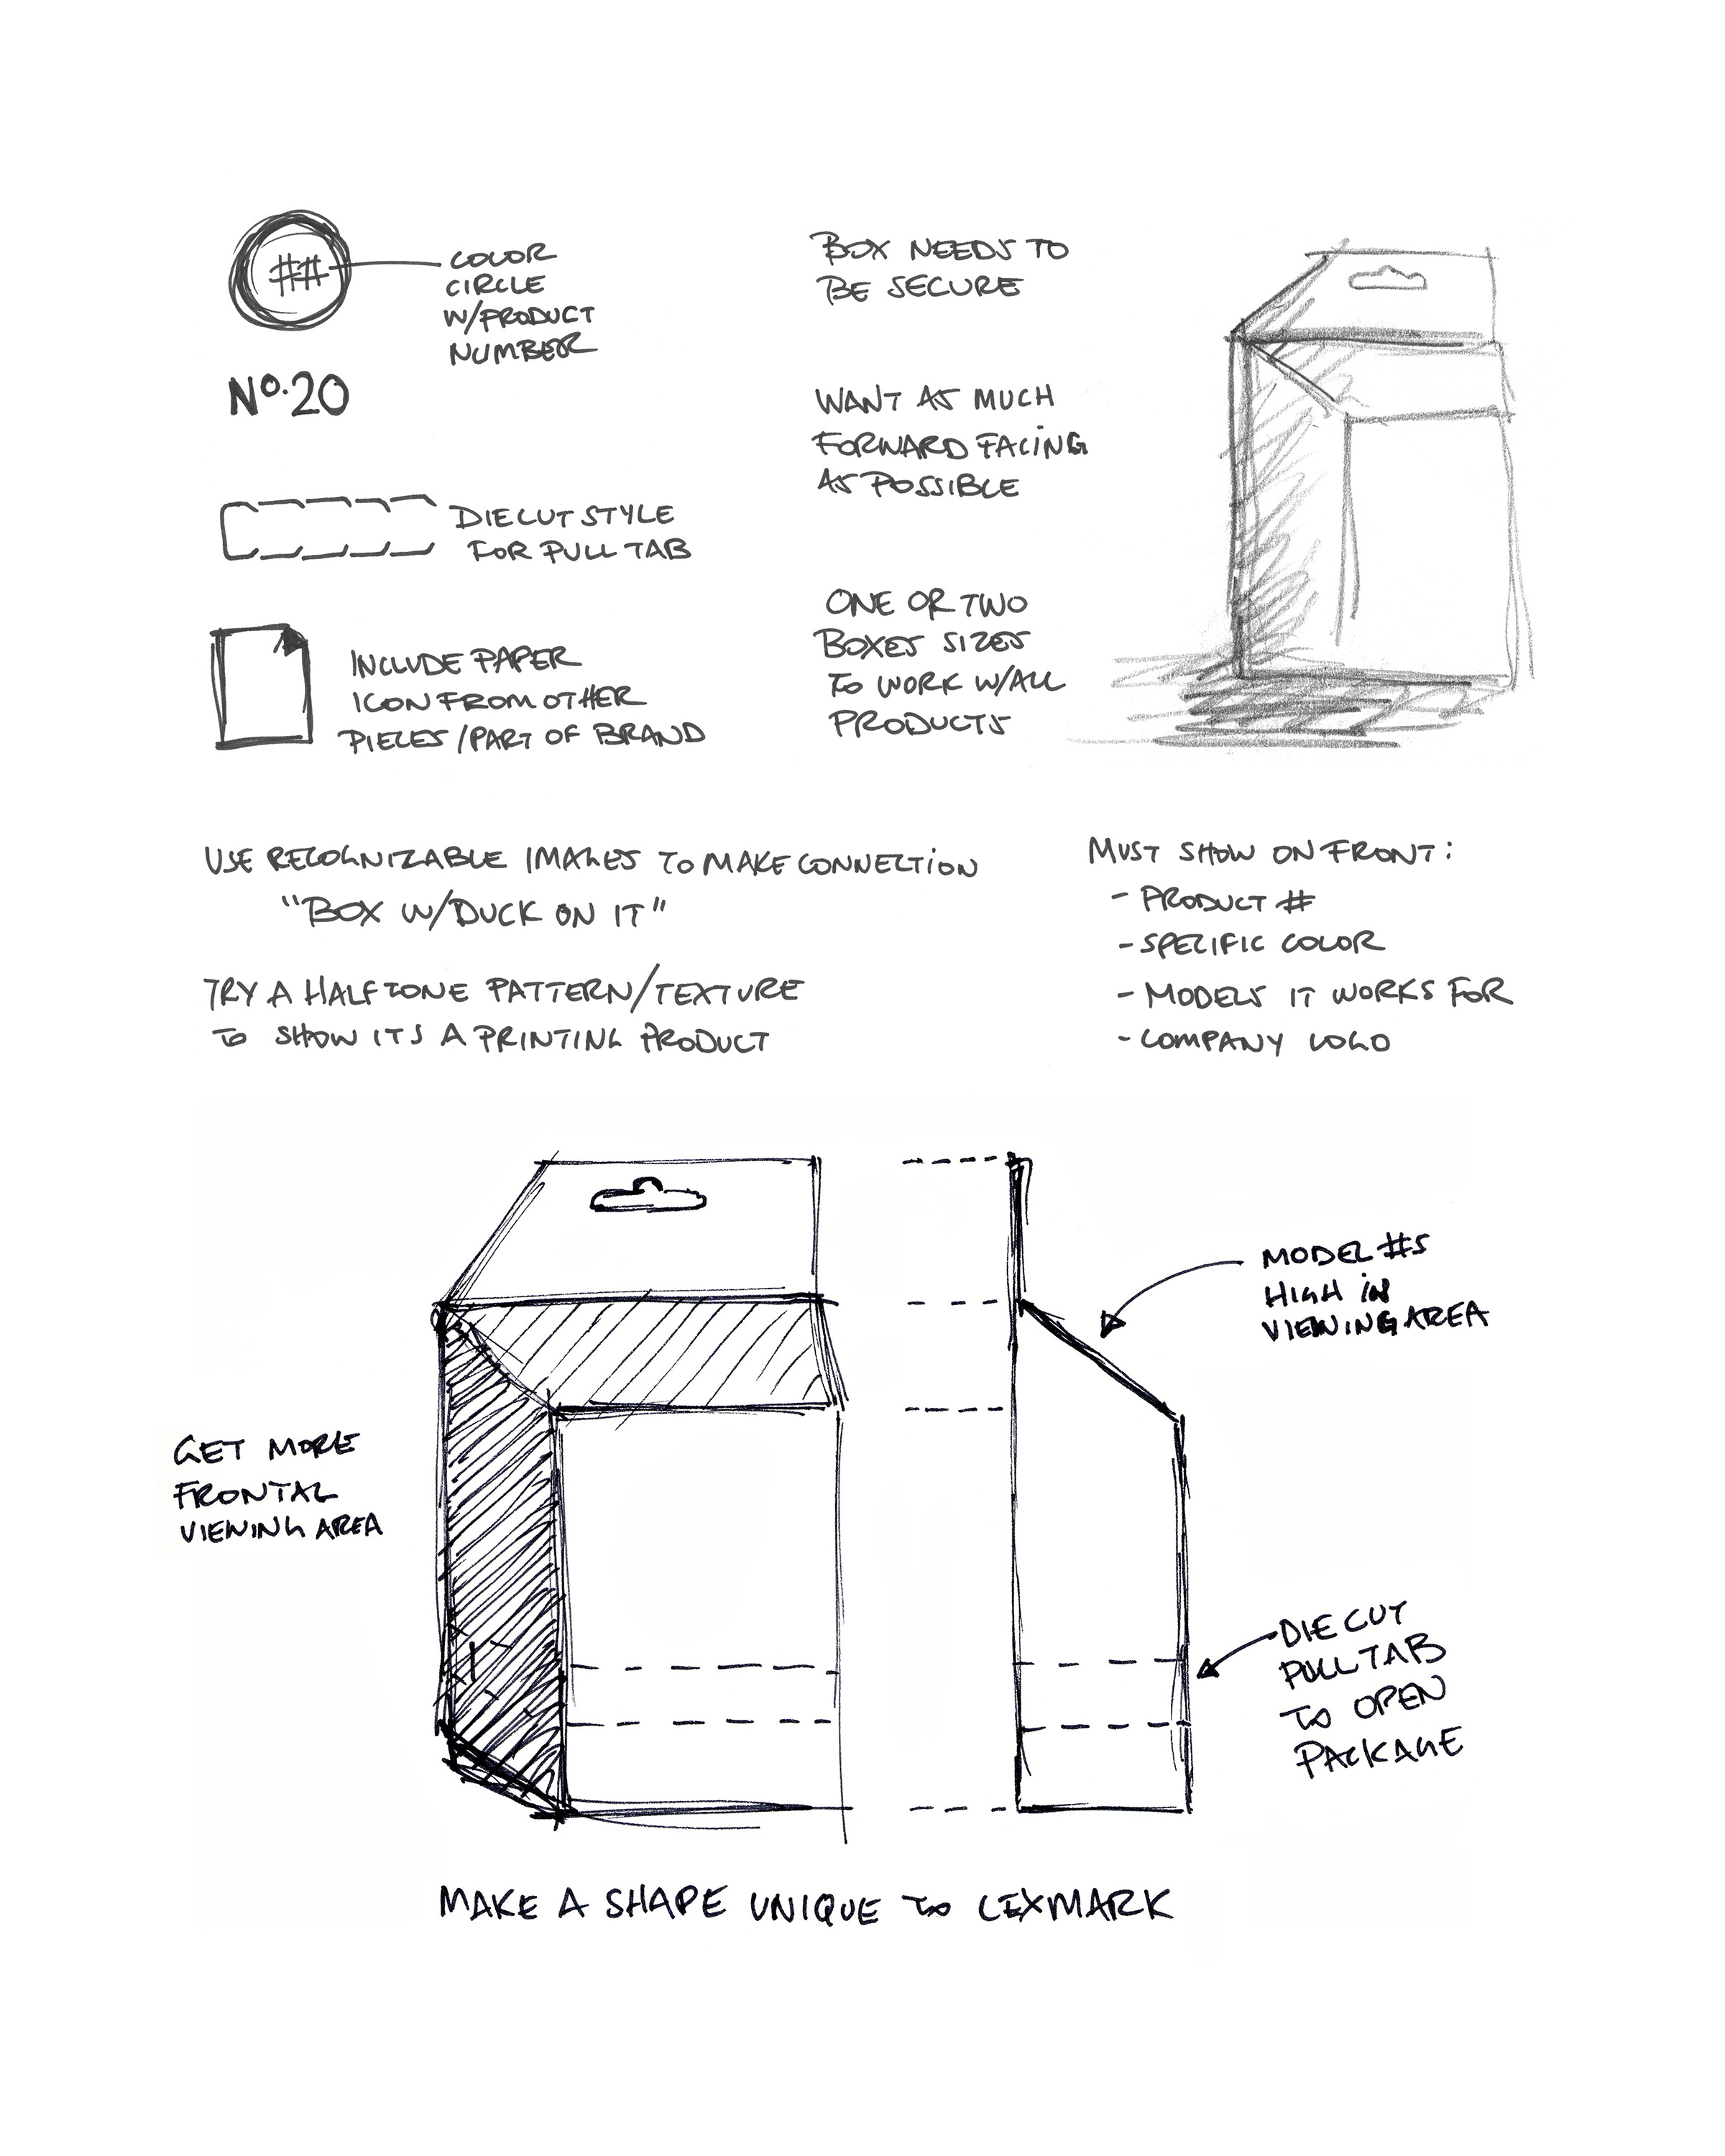 ##
COLOR
CIRCLE
W/PRODUCT
NUMBER
Nº.20
DIECUT STYLE
FOR PULL TAB
INCLUDE PAPER
ICON FROM OTHER
PIECES/PART OF BRAND
BOX NEEDS TO
BE SECURE
WANT AS MUCH
FORWARD FACING
AS POSSIBLE
ONE OR TWO
BOXES SIZES
TO WORK W/ALL
PRODUCTS
USE RECOGNIZABLE IMAGES TO MAKE CONNECTION
"BOX W/DUCK ON IT"
TRY A HALFTONE PATTERN/TEXTURE
TO SHOW ITS A PRINTING PRODUCT
MUST SHOW ON FRONT:
- PRODUCT #
- SPECIFIC COLOR
- MODELS IT WORKS FOR
- COMPANY LOGO
MODEL #S
HIGH IN
VIEWING AREA
GET MORE
FRONTAL
VIEWING AREA
DIE CUT
PULL TAB
TO OPEN
PACKAGE
MAKE A SHAPE UNIQUE TO LEXMARK